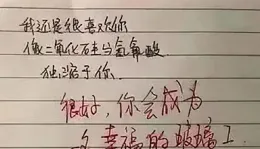 我还是很喜欢你
像二氧化硅与氢氟酸
独溶于你.
很好,你会成为
个幸福的玻璃工.